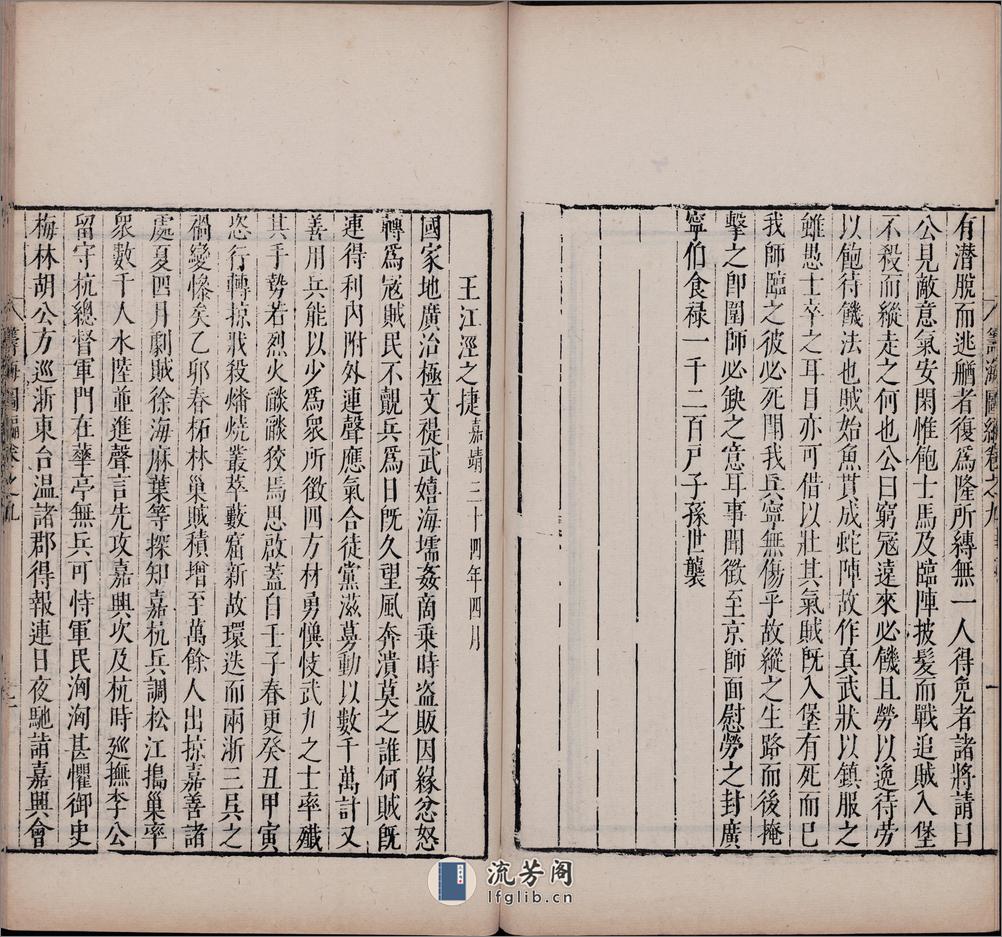 有潜脫而逃艏者復爲隆所縳無一人得免者諸將請曰
公見敵意氣安閑惟飽士馬及臨陣披髮而戰追賊入堡
不殺而縱走之何也公曰窮冦遠來必饑且勞以逸待勞
以飽待饑法也賊始魚貫成蛇陣故作真武狀以鎮服之
雖愚士卒之耳目亦可借以壯其氣賊旣入堡有死而已
我師臨之彼必死鬪我兵寧無傷乎故縱之生路而後掩
擊之即圍師必缺之意耳事聞徵至京師面慰勞之封廣
寧伯食禄一千二百戶子孫世襲
籌海圖編卷之九
王江涇之捷嘉靖三十四年四月
國家地廣治極文禔武嬉海壖姦商乘時盗販因緣忿怒
轉爲冦賊民不覩兵爲日旣久望風奔潰莫之誰何賊旣
連得利內附外連聲應氣合徒黨滋蔓動以數千萬計又
善用兵能以少爲衆所徵四方材勇懻忮武力之士率殱
其手勢若烈火燄燄狡焉思啟蓋自壬子春更癸丑甲寅
恣行轉掠戕殺燔燒叢萃藪窟新故環迭而兩浙三呉之
禍變慘矣乙夘春柘林巢賊積增至萬餘人出掠嘉善諸
處夏四月劇賊徐海麻葉等探知嘉杭兵調松江搗巢率
衆數千人水陸並進聲言先攻嘉興次及杭時廵撫李公
留守杭總督軍門在華亭無兵可恃軍民洶洶甚懼御史
梅林胡公方巡浙東台温諸郡得報連日夜馳詣嘉興會
籌海圖編卷之九
流芳阁
lfglib.cn